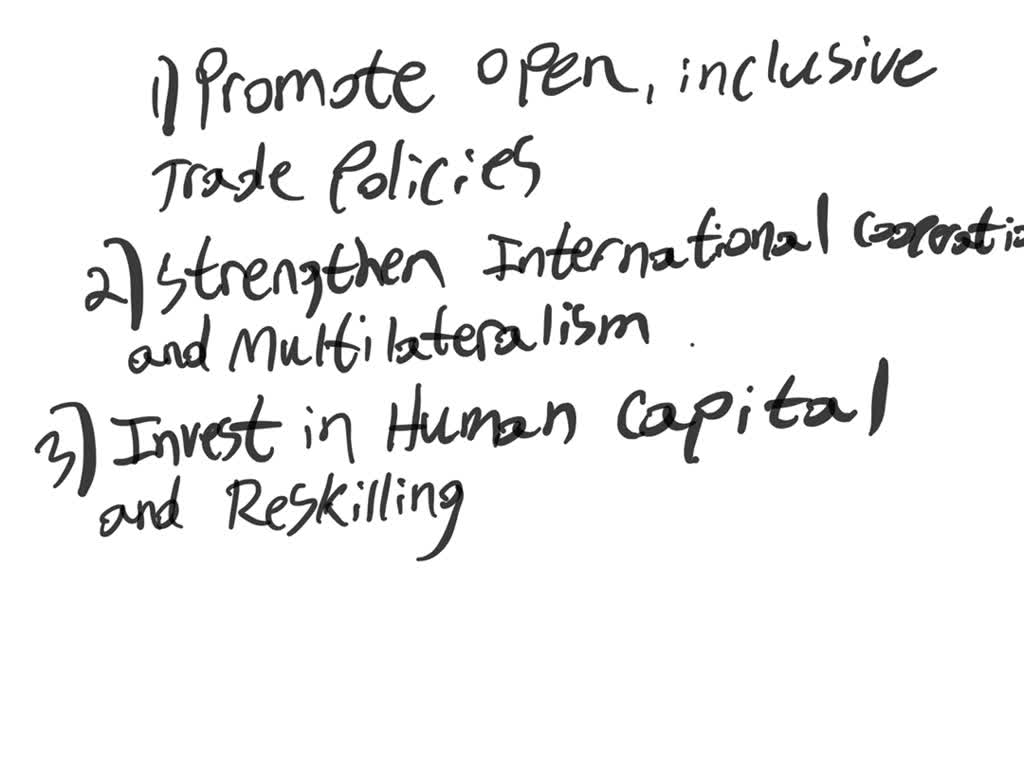 1) Promote open, inclusive
Trade Policies
2) Strengthen International cooperatio
and Multilateralism.
3) Invest in Human capital
and Reskilling